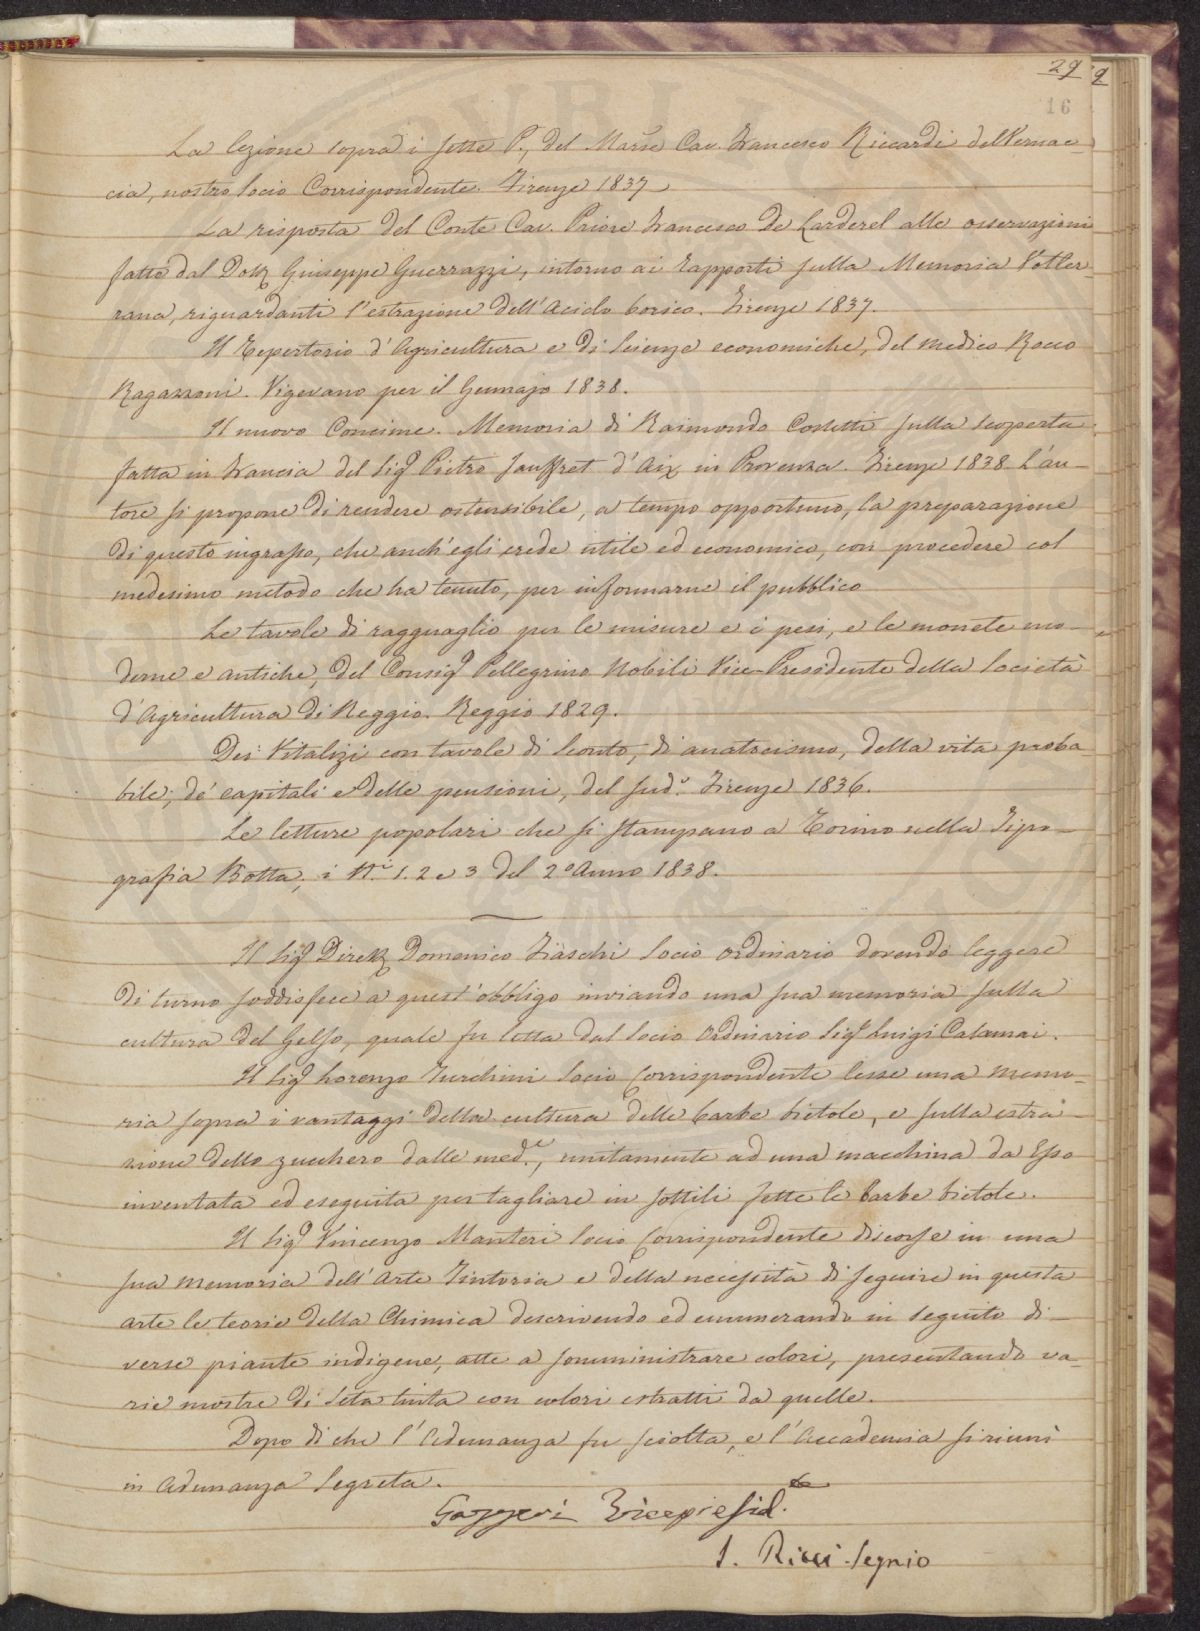 29 9
16
La lezione sopra i sette P., del Marse Cav. Francesco Riccardi del Vernac-
cia, nostro Socio Corrispondente. Firenze 1837
La risposta del Conte Cav. Priore Francesco De Larderel alle osservazioni
fatte dal Dott Giuseppe Guerrazzi, intorno ai rapporti sulla Memoria Volter
rana, riguardanti l'estrazione dell'Acido borico. Firenze 1837.
Il Repertorio d'Agricultura e di Scienze economiche, del Medico Rocco
Ragazzoni. Vigevano per il Gennajo 1838.
Il nuovo Concime. Memoria di Raimondo Costetti sulla scoperta
fatta in Francia del Sig Pietro Jauffret d'Aix in Provenza. Firenze 1838 L'au-
tore si propone di rendere ostensibile, a tempo opportuno, la preparazione
di questo ingrasso, che anch'egli crede utile ed economico, con procedere col
medesimo metodo che ha tenuto, per informarne il pubblico
Le tavole di ragguaglio per le misure e i pesi, e le monete mo-
derne e antiche, del Consig Pellegrino Nobili Vice-Presidente della Società
d'Agricultura di Reggio. Reggio 1829.
Dei Vitalizi con tavole di Sconto, di anatocismo, della vita proba
bile, de' capitali e delle pensioni, del sud.º Firenze 1836.
Le letture popolari che si stampano a Torino nella Tipo-
grafia Botta, i N.i 1. 2 e 3 del 2º Anno 1838.
Il Sig Dirett Domenico Fiaschi Socio Ordinario dovendo leggere
di turno soddisfece a quest'obbligo inviando una sua memoria sulla
cultura del Gelso, quale fu letta dal Socio Ordinario Sig Luigi Calamai.
Il Sig Lorenzo Turchini Socio Corrispondente lesse una Memo-
ria sopra i vantaggi della cultura delle barbe bietole, e sulla estra-
zione dello zucchero dalle med.e, unitamente ad una macchina da Esso
inventata ed eseguita per tagliare in sottili fette le barbe bietole.
Il Sig Vincenzo Manteri Socio Corrispondente discorse in una
sua Memoria dell'Arte Tintoria e della necessità di seguire in questa
arte le teorie della Chimica descrivendo ed enumerando in seguito di-
verse piante indigene, atte a somministrare colori, presentando va-
rie mostre di Seta tinta con colori estratti da quelle.
Dopo di che l'Adunanza fu sciolta, e l'Accademia si riunì
in Adunanza Segreta.
Gazzeri Vicepresid.te
S. Ricci Segrio